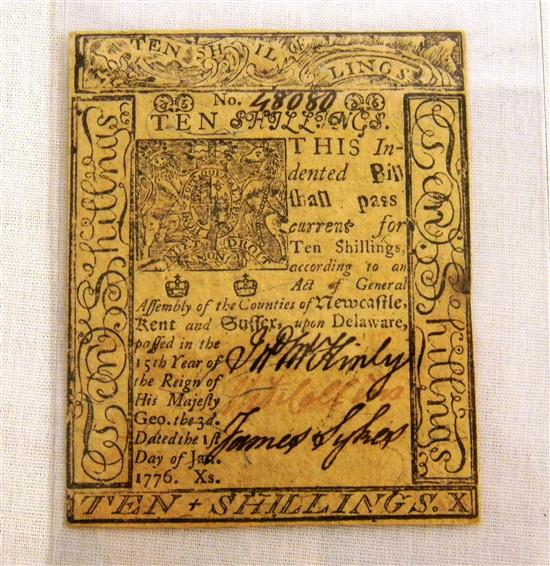 TEN SHILLINGS
No. 48080
TEN SHILLINGS.
THIS In-
dented Bill
shall pass
current for
Ten Shillings,
according to an
Act of General
Assembly of the Counties of Newcastle,
Kent and Sussex, upon Delaware,
passed in the
15th Year of
the Reign of
His Majesty
Geo. the 3d.
Dated the 1st
Day of Jan.
1776. Xs.
Jno McKinly
James Sykes
DIEU ET MON DROIT
Ten Shillings
Ten Shillings
TEN + SHILLINGS. X